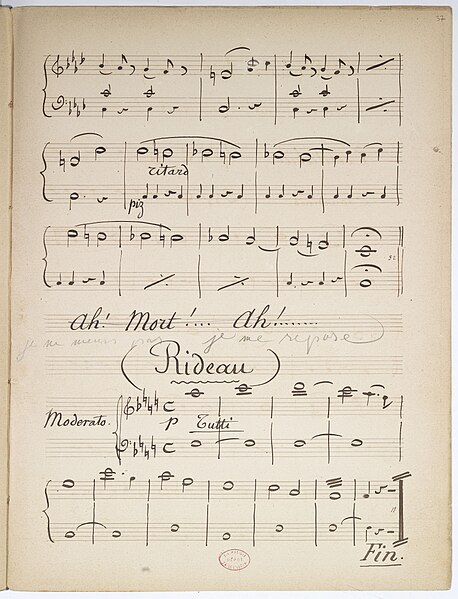 57
ritard
piz
Ah! Mort!.... Ah!........
je ne meurs pas je me repose
(Rideau)
Moderato.
p Tutti
Fin.